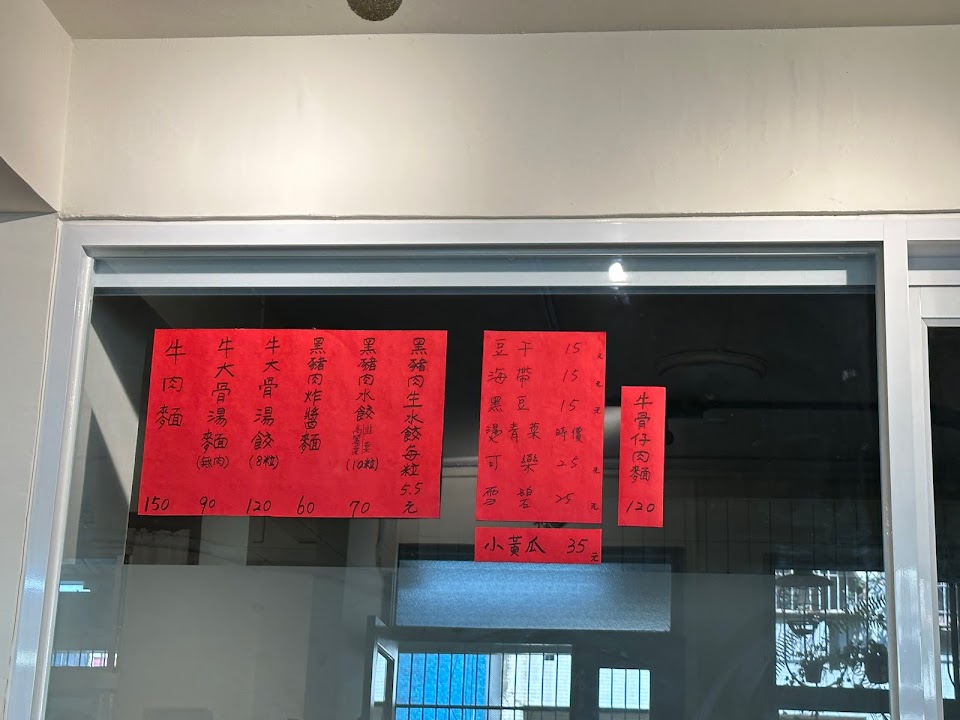 牛肉麵 150
牛大骨湯麵(無肉) 90
牛大骨湯餃(8粒) 120
黑豬肉炸醬麵 60
黑豬肉水餃 高麗菜 (10粒) 70
黑豬肉生水餃每粒5.5元
豆干 15元
海帶 15元
黑豆 15元
燙青菜 時價
可樂 25元
雪碧 25元
小黃瓜 35元
牛骨仔肉麵 120